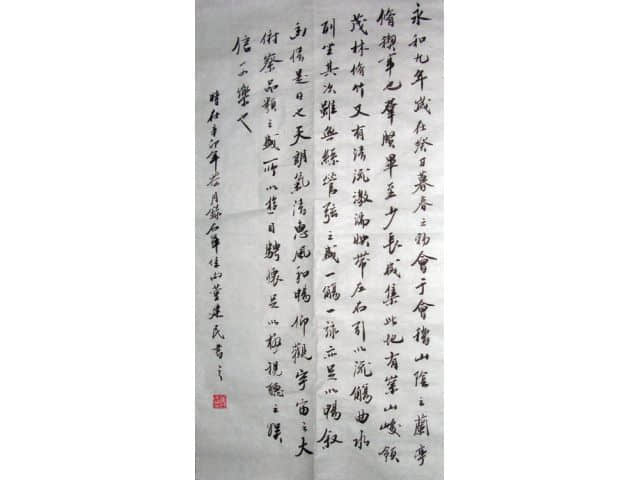 永和九年歲在癸丑暮春之初會于會稽山陰之蘭亭
脩禊事也羣賢畢至少長咸集此地有崇山峻領
茂林脩竹又有清流激湍映帶左右引以流觴曲水
列坐其次雖無絲管弦之盛一觴一詠亦足以暢叙
幽情是日也天朗氣清惠風和暢仰觀宇宙之大
俯察品類之盛所以遊目騁懷足以極視聽之娛
信可樂也
時在辛卯年月錄右軍佳句董建民書之